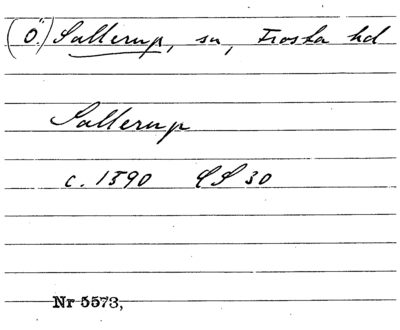 (Ö.) Sallerup, sn, Frosta hd
Sallerup
c. 1590 LS 30
Nr 5573,